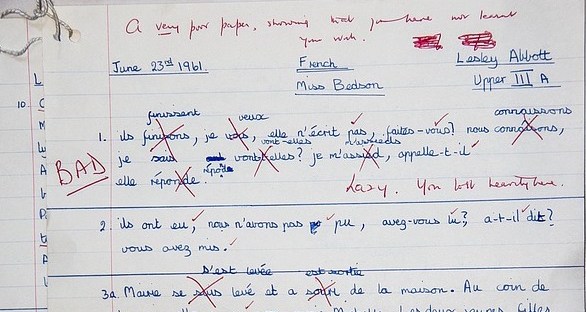 A very poor paper, showing that you have not learnt
your work.
June 23rd 1961.
French
Lesley Abbott
Miss Bedson
Upper III A
finissent
veux
connaissons
1. ils finirons, je vois, elle n'écrit pas, faites-vous? nous connaîtrons,
vont-elles
m'assieds
je sais vont-elles? je m'assied, appelle-t-il
BAD
répond
elle réponde.
Lazy. You lost heavily here.
2. ils ont eu, nous n'avons pas pu, avez-vous lu?, a-t-il dit?
vous avez mis.
s'est levée
est sortie
3a. Marie se levé et a de la maison. Au coin de